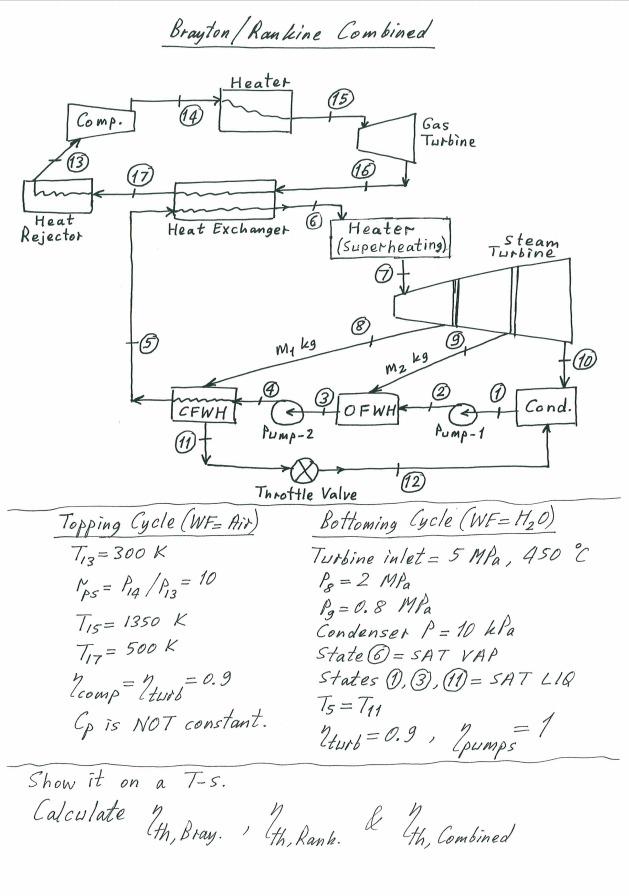 Brayton/Rankine Combined
Heater
Comp.
14
15
Gas
Turbine
13
17
16
Heat
Rejector
Heat Exchanger
6
Heater
(Superheating)
Steam
Turbine
7
8
9
m1 kg
m2 kg
5
10
4
3
2
1
CFWH
OFWH
Cond.
Pump-2
Pump-1
11
12
Throttle Valve
Topping Cycle (WF= Air)
T13=300 K
rps= P14/P13=10
T15=1350 K
T17= 500 K
ηcomp=ηturb=0.9
Cp is NOT constant.
Bottoming Cycle (WF=H2O)
Turbine inlet= 5 MPa, 450 °C
P8=2 MPa
P9=0.8 MPa
Condenser P=10 kPa
State ⑥=SAT VAP
States ①,③,⑪=SAT LIQ
T5=T11
ηturb=0.9, ηpumps=1
Show it on a T-s.
Calculate ηth,Bray., ηth,Rank. & ηth,Combined